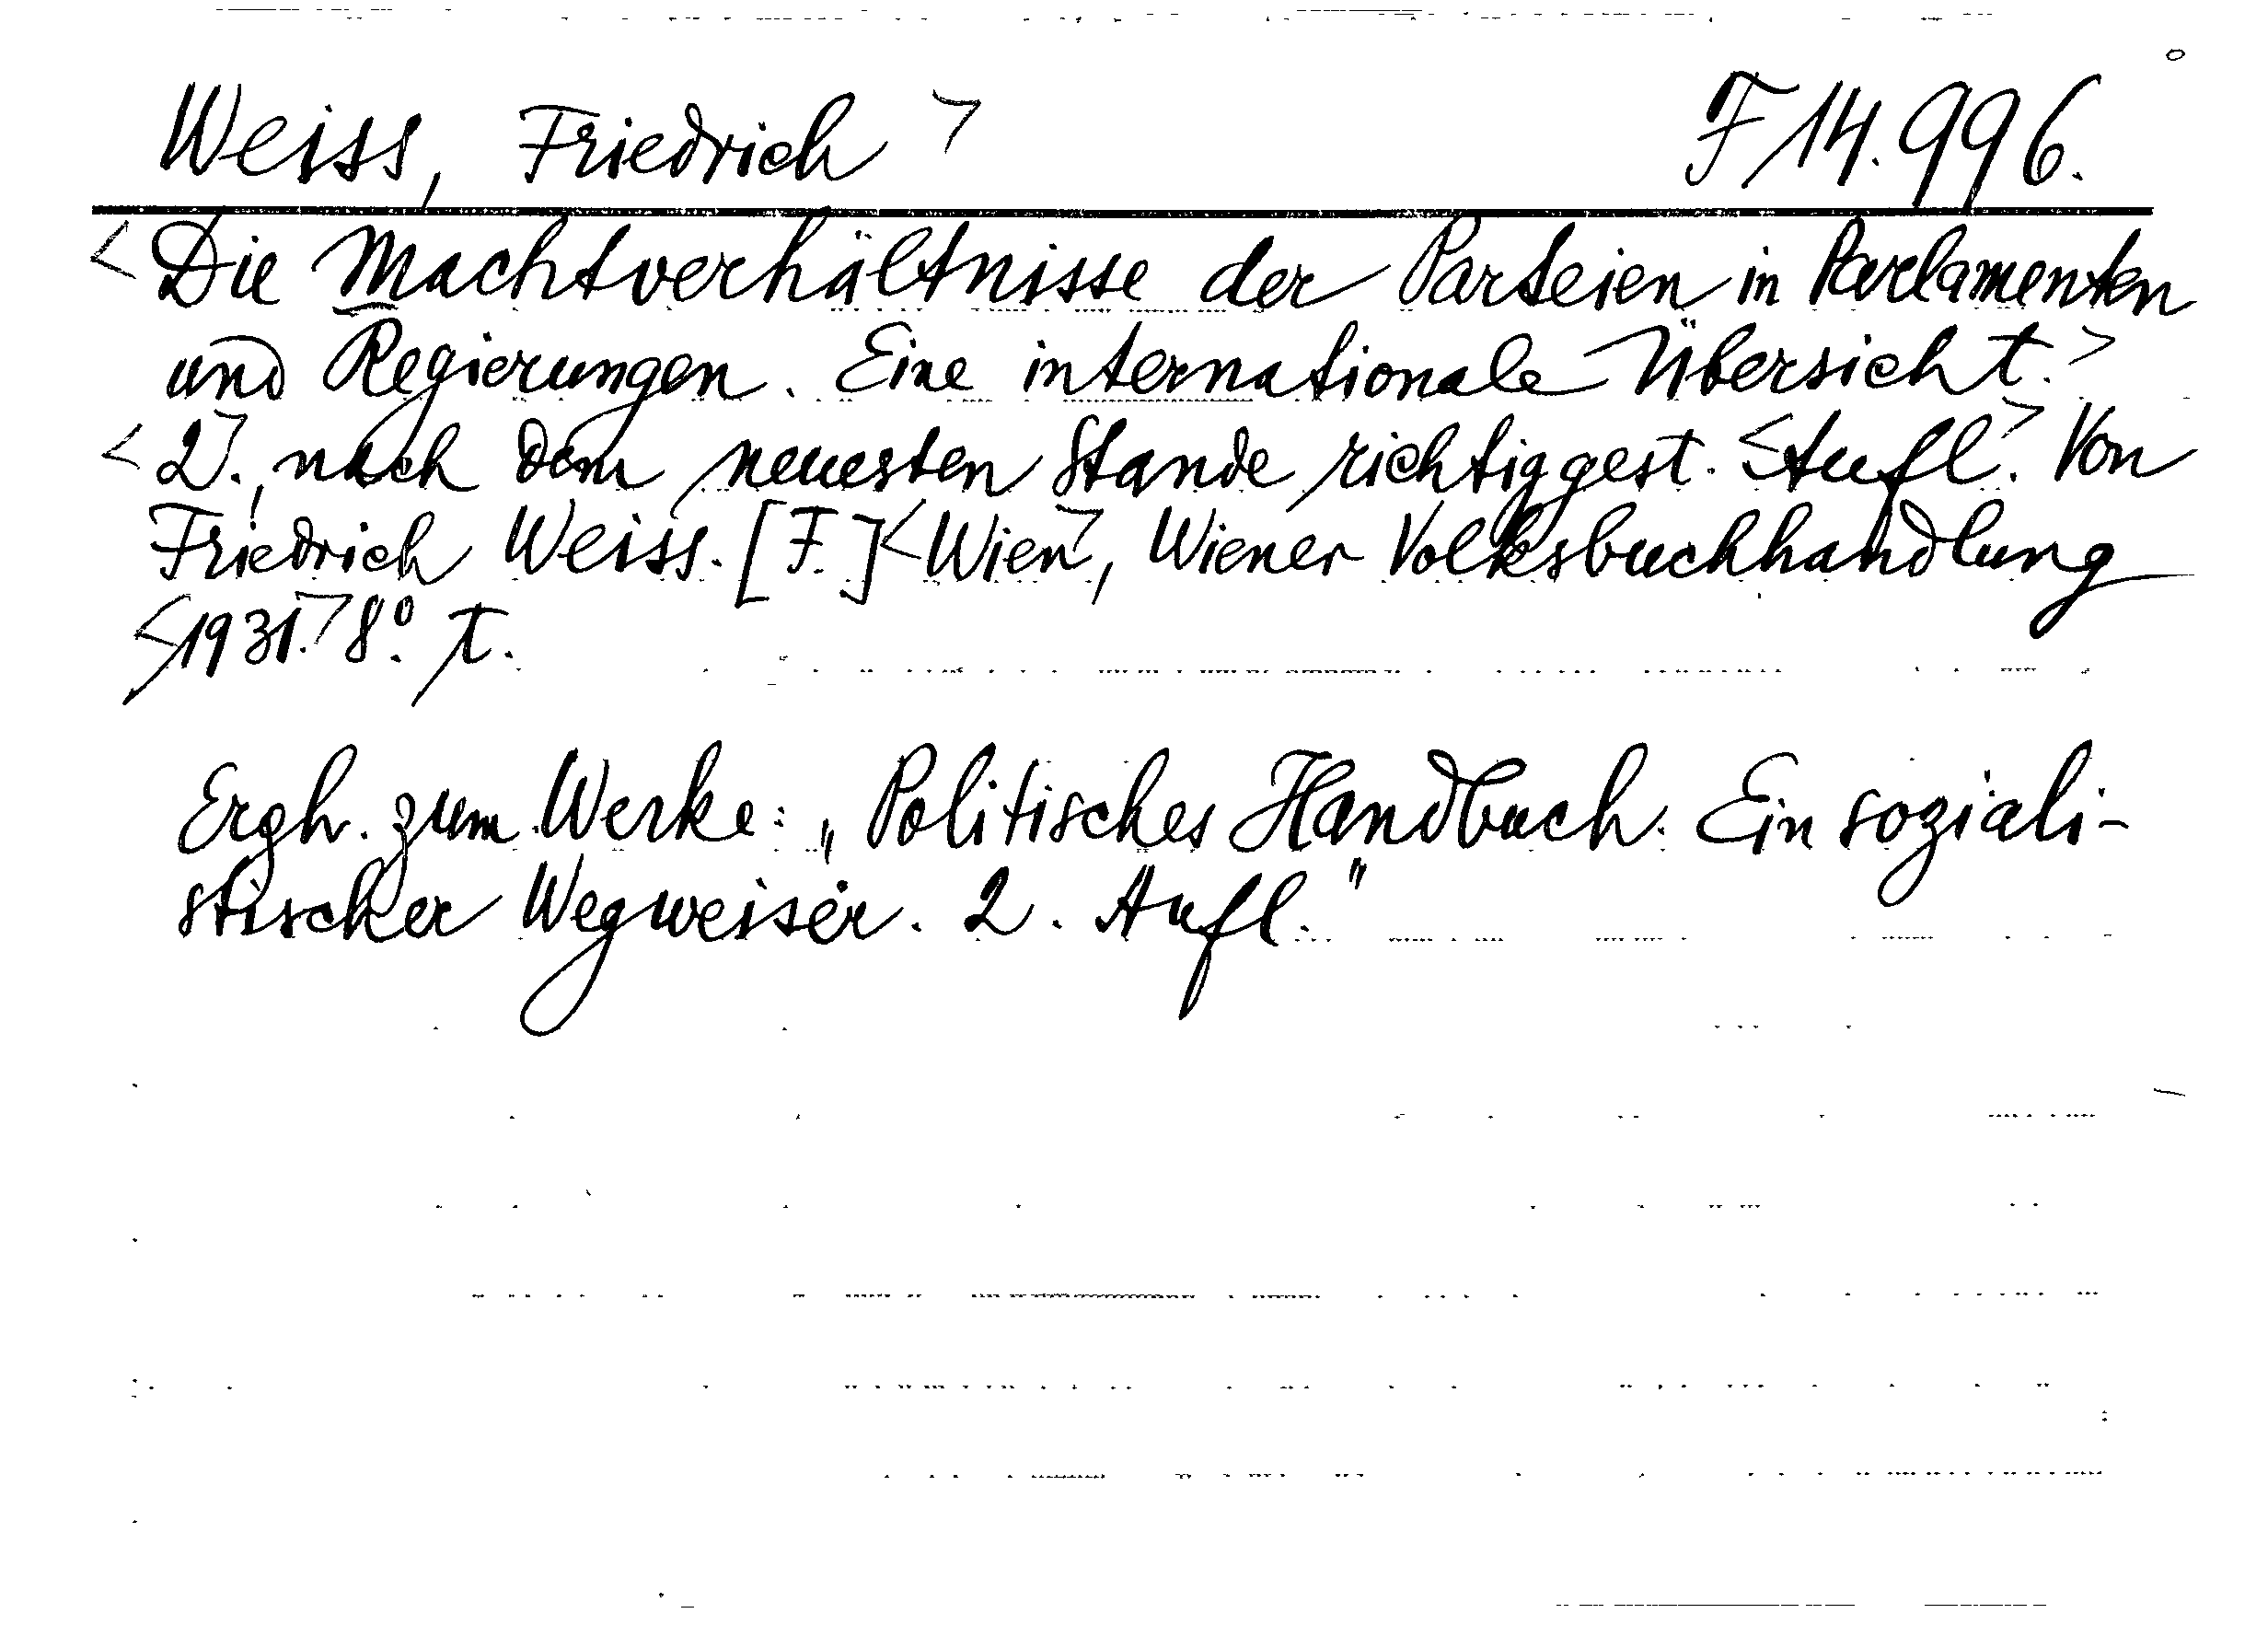 Weiss, Friedrich > F 14.996.
<Die Machtverhältnisse der Parteien in Parlamenten
und Regierungen. Eine internationale Übersicht.>
<2>., nach dem neuesten Stande richtiggest. <Aufl>. Von
Friedrich Weiss. [F.] <Wien>, Wiener Volksbuchhandlung
<1931.> 8°. T.
Ergh. zum Werke: „Politisches Handbuch. Ein soziali-
stischer Wegweiser. 2. Aufl."